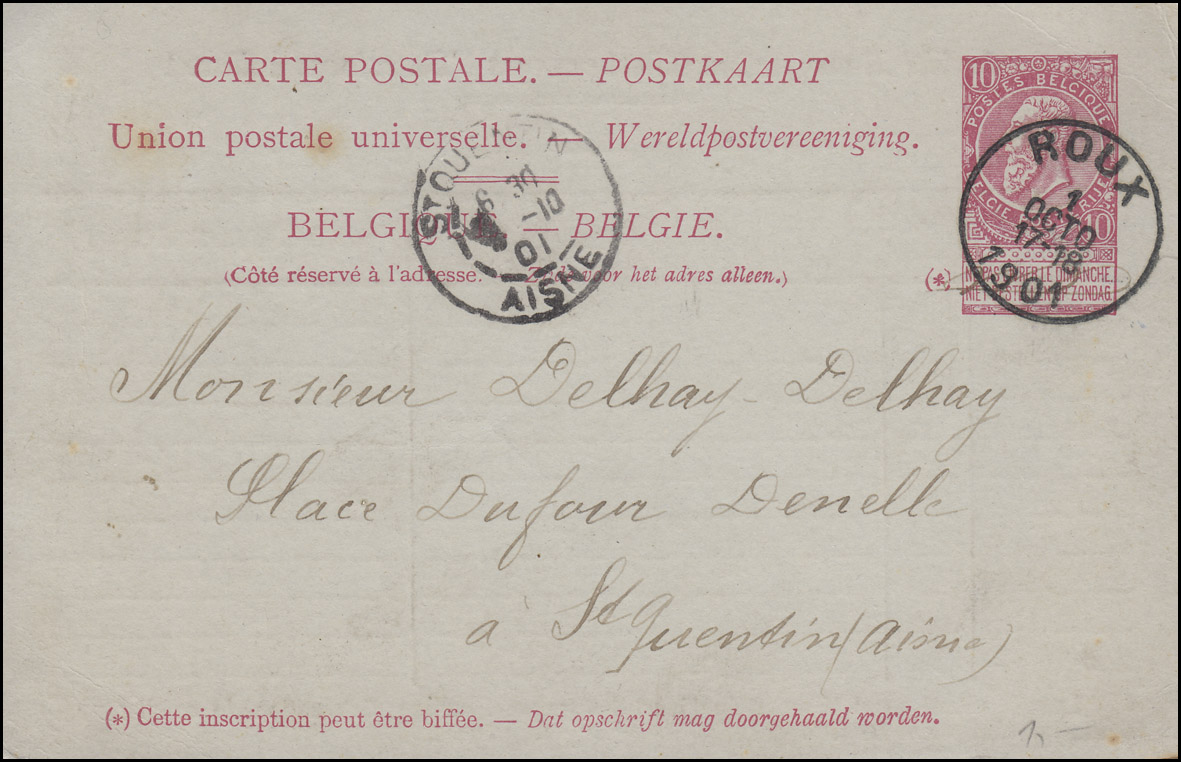 CARTE POSTALE. — POSTKAART
Union postale universelle. — Wereldpostvereeniging.
BELGIQUE. — BELGIE.
(Côté réservé à l'adresse. — Zijde voor het adres alleen.)
10
POSTES BELGIQUE
10
(*) NE PAS LIVRER LE DIMANCHE.
NIET BESTELLEN OP ZONDAG.
ROUX
1
OCTO
17-18
1901
ST QUENTIN
10
01
AISNE
Monsieur Delhay-Delhay
Place Dufour Denelle
à St Quentin (Aisne)
(*) Cette inscription peut être biffée. — Dat opschrift mag doorgehaald worden.